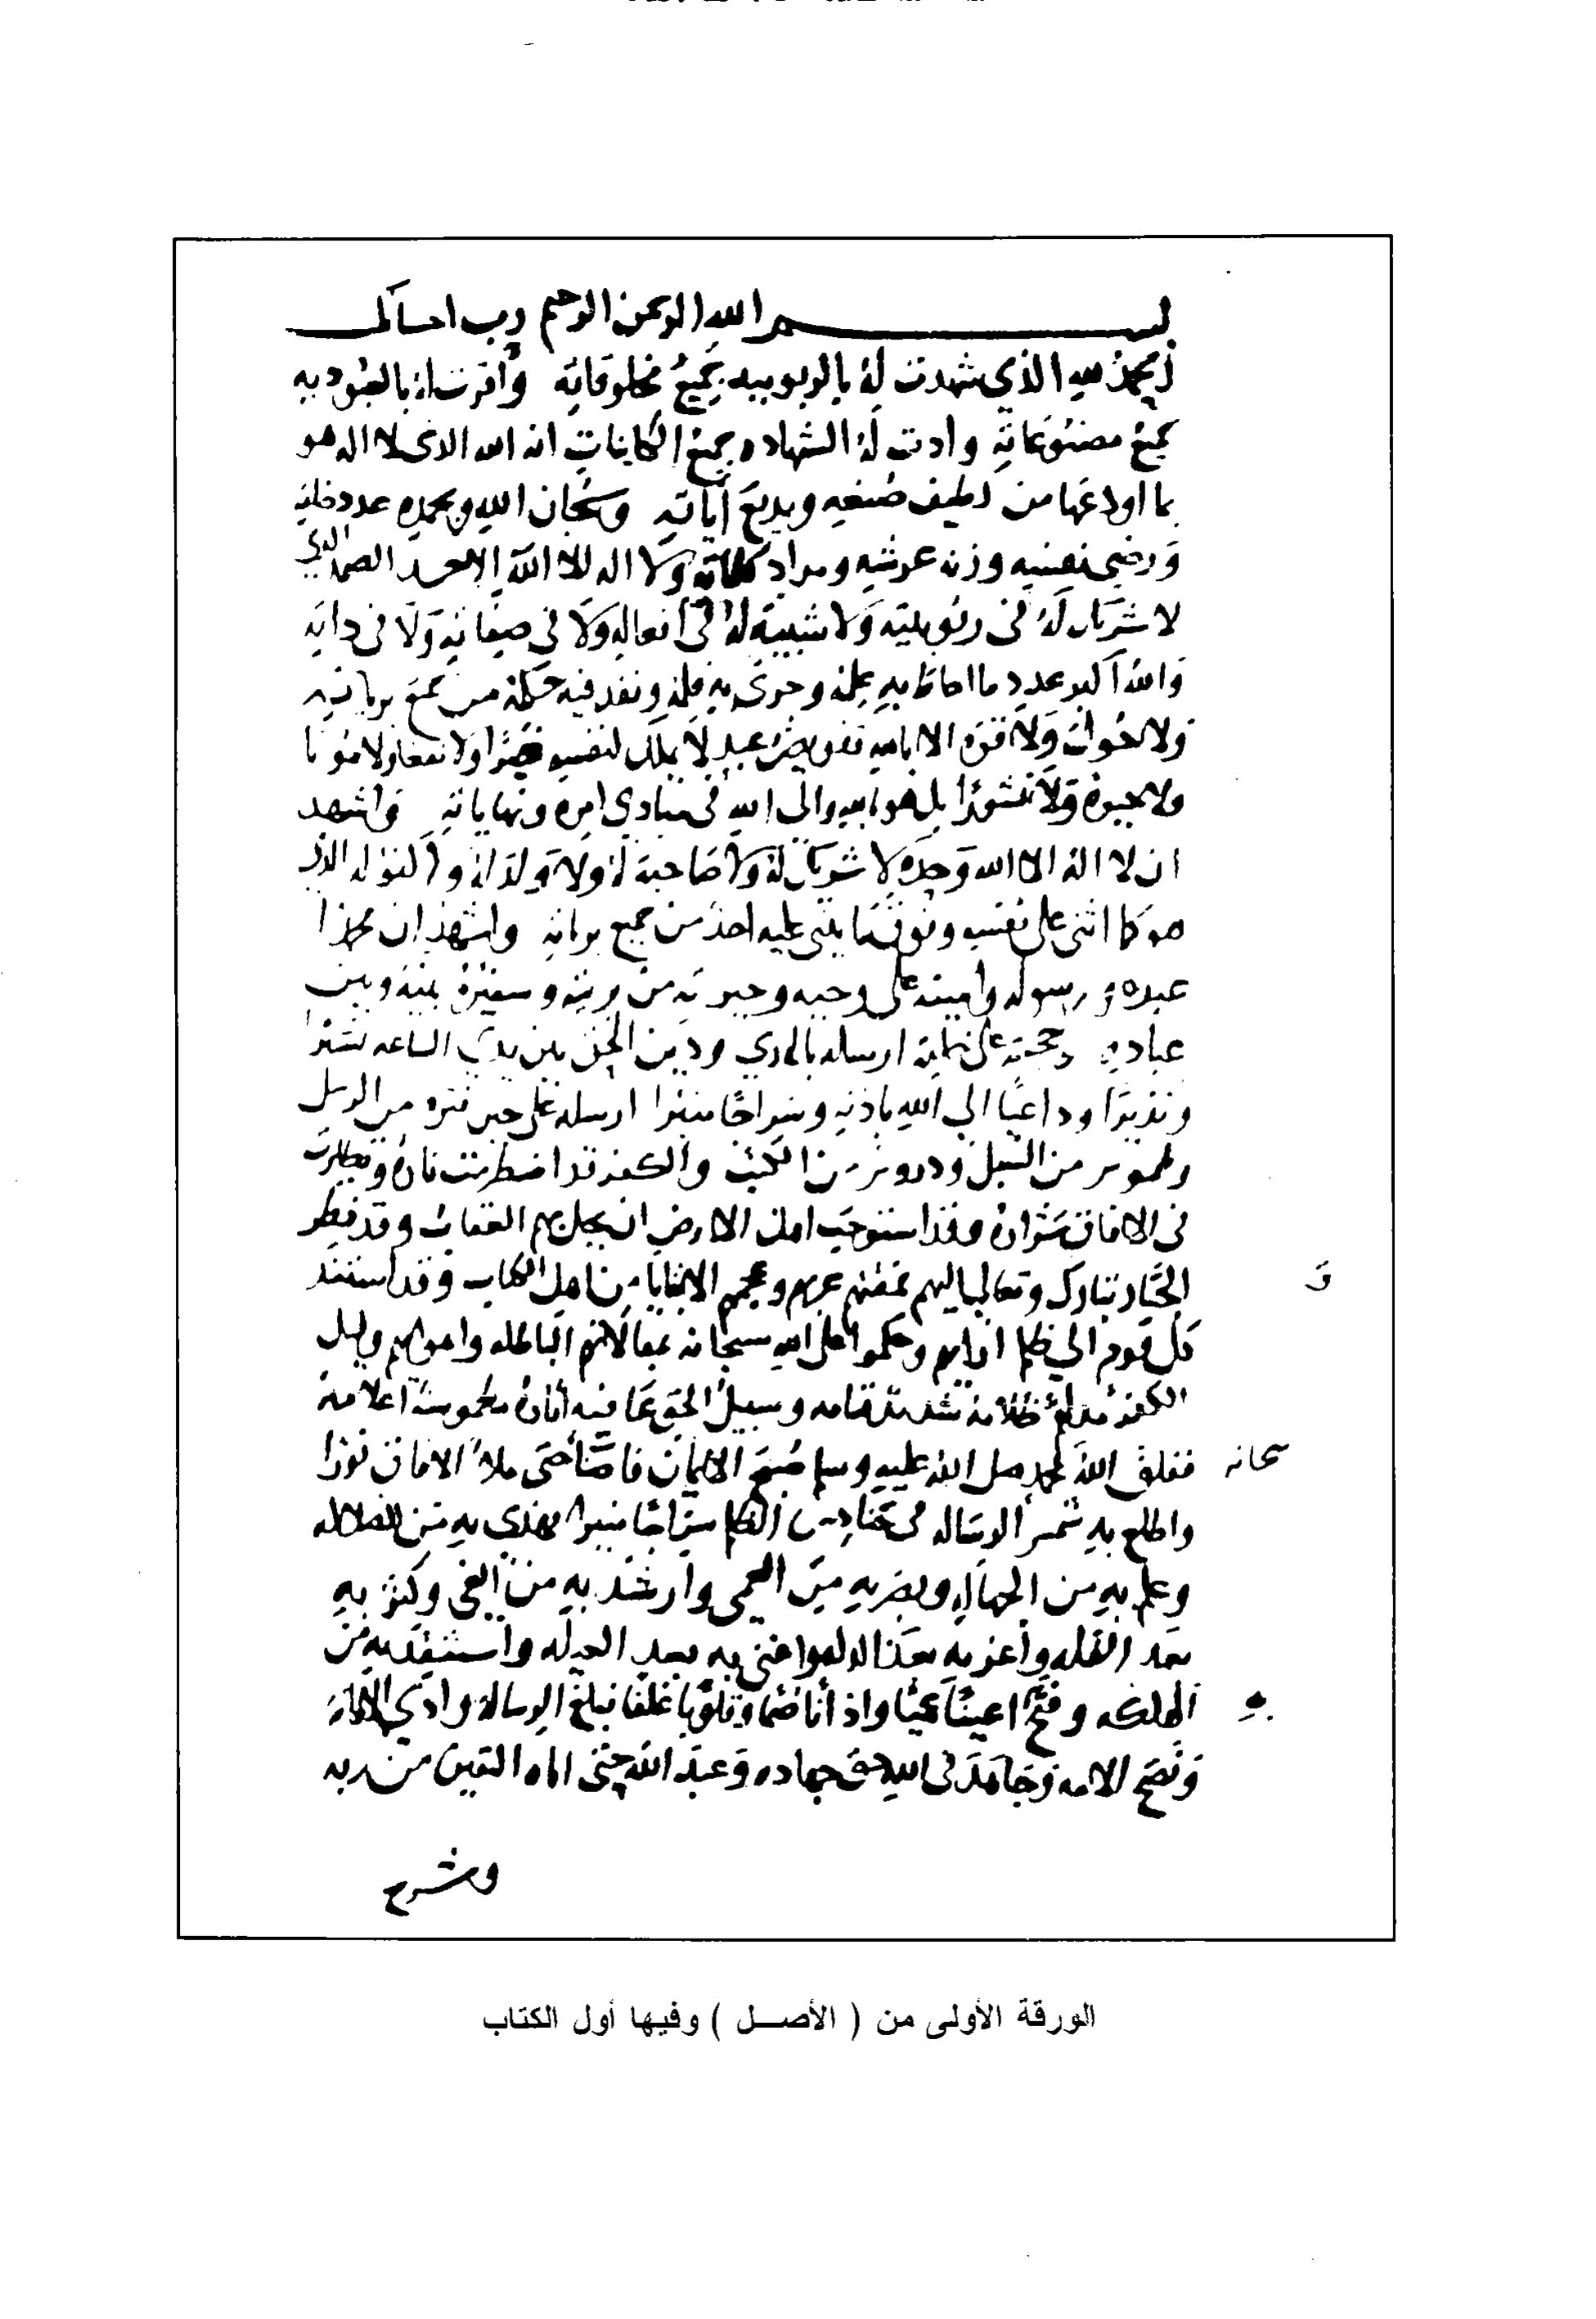 بسم الله الرحمن الرحيم رب
الحمد لله الذي شهدت له بالربوبيه جميع مخلوقاته واقرت له بالعبوديه
جميع مصنوعاته وادت له الشهاده جميع الكاينات انه الله الذي لا اله الا هو
بما اودعها من لطيف صنعه وبديع آياته وسبحان الله وبحمده عدد خلقه
ورضى نفسه وزنه عرشه ومداد كلماته ولا اله الا الله الاحد الصمد الذي
لا شريك له في ربوبيته ولا شبيه له في افعاله ولا في صفاته ولا في ذاته
والله اكبر عدد ما احاط به علمه وجرى به قلمه ونفذ فيه حكمه من جميع برياته
ولا حول ولا قوه الا بالله تفويض عبد لا يملك لنفسه ضرا ولا نفعا ولا موتا
ولا حيوة ولا نشورا بل هو بالله والى الله في مبادي امره ونهاياته واشهد
ان لا اله الا الله وحده لا شريك له ولا صاحبة له ولا ولد له ولا كفو له الذي
هو كما اثنى على نفسه وفوق ما يثني عليه احد من جميع برياته واشهد ان محمدا
عبده ورسوله وامينه على وحيه وخيرته من بريته وسفيره بينه وبين
عباده وحجته على ارسله بالهدي ودين الحق بين يدي الساعه بشيرا
ونذيرا وداعيا الي الله باذنه وسراجا منيرا ارسله على حين فتره من الرسل
وطموس من السبل ودروس من الكتب والكفر قد اضطرمت ناره وتطايرت
في الافاق شراره وقد استوجب اهل الارض ان يحل بهم العقاب وقد نظر
الجبار تبارك وتعالى اليهم فمقتهم عربهم وعجمهم الا بقايا من اهل الكتاب وقد استند
كل قوم الي ظلم اراىهم وحكموا على الله سبحانه بمقالاتهم الباطله واهوائهم وليل
الكفر مدلهم ظلامه شديد قتامه وسبيل الحق عافيه اثاره مطموسة اعلامه
ففلق الله بمحمد صلى الله عليه وسلم صبح الايمان فاضا حتى ملا الافاق نورا
سبحانه
واطلع به شمس الرساله في حنادس الظلم سراجا منيرا فهدى به من الضلاله
وعلم به من الجهاله وبصر به من العمى وارشد به من الغي وكثر به
بعد القله واعز به بعد الذله واغنى به بعد العيله واستنقذ به من
الهلكه وفتح به اعينا عميا واذانا صما وقلوبا غلفا فبلغ الرسالة وادي الامانة
ونصح الامه وجاهد في الله حق جهاده وعبد الله حتى اتاه اليقين من ربه
وشرح
الورقة الأولى من ( الأصـــل ) وفيها أول الكتاب